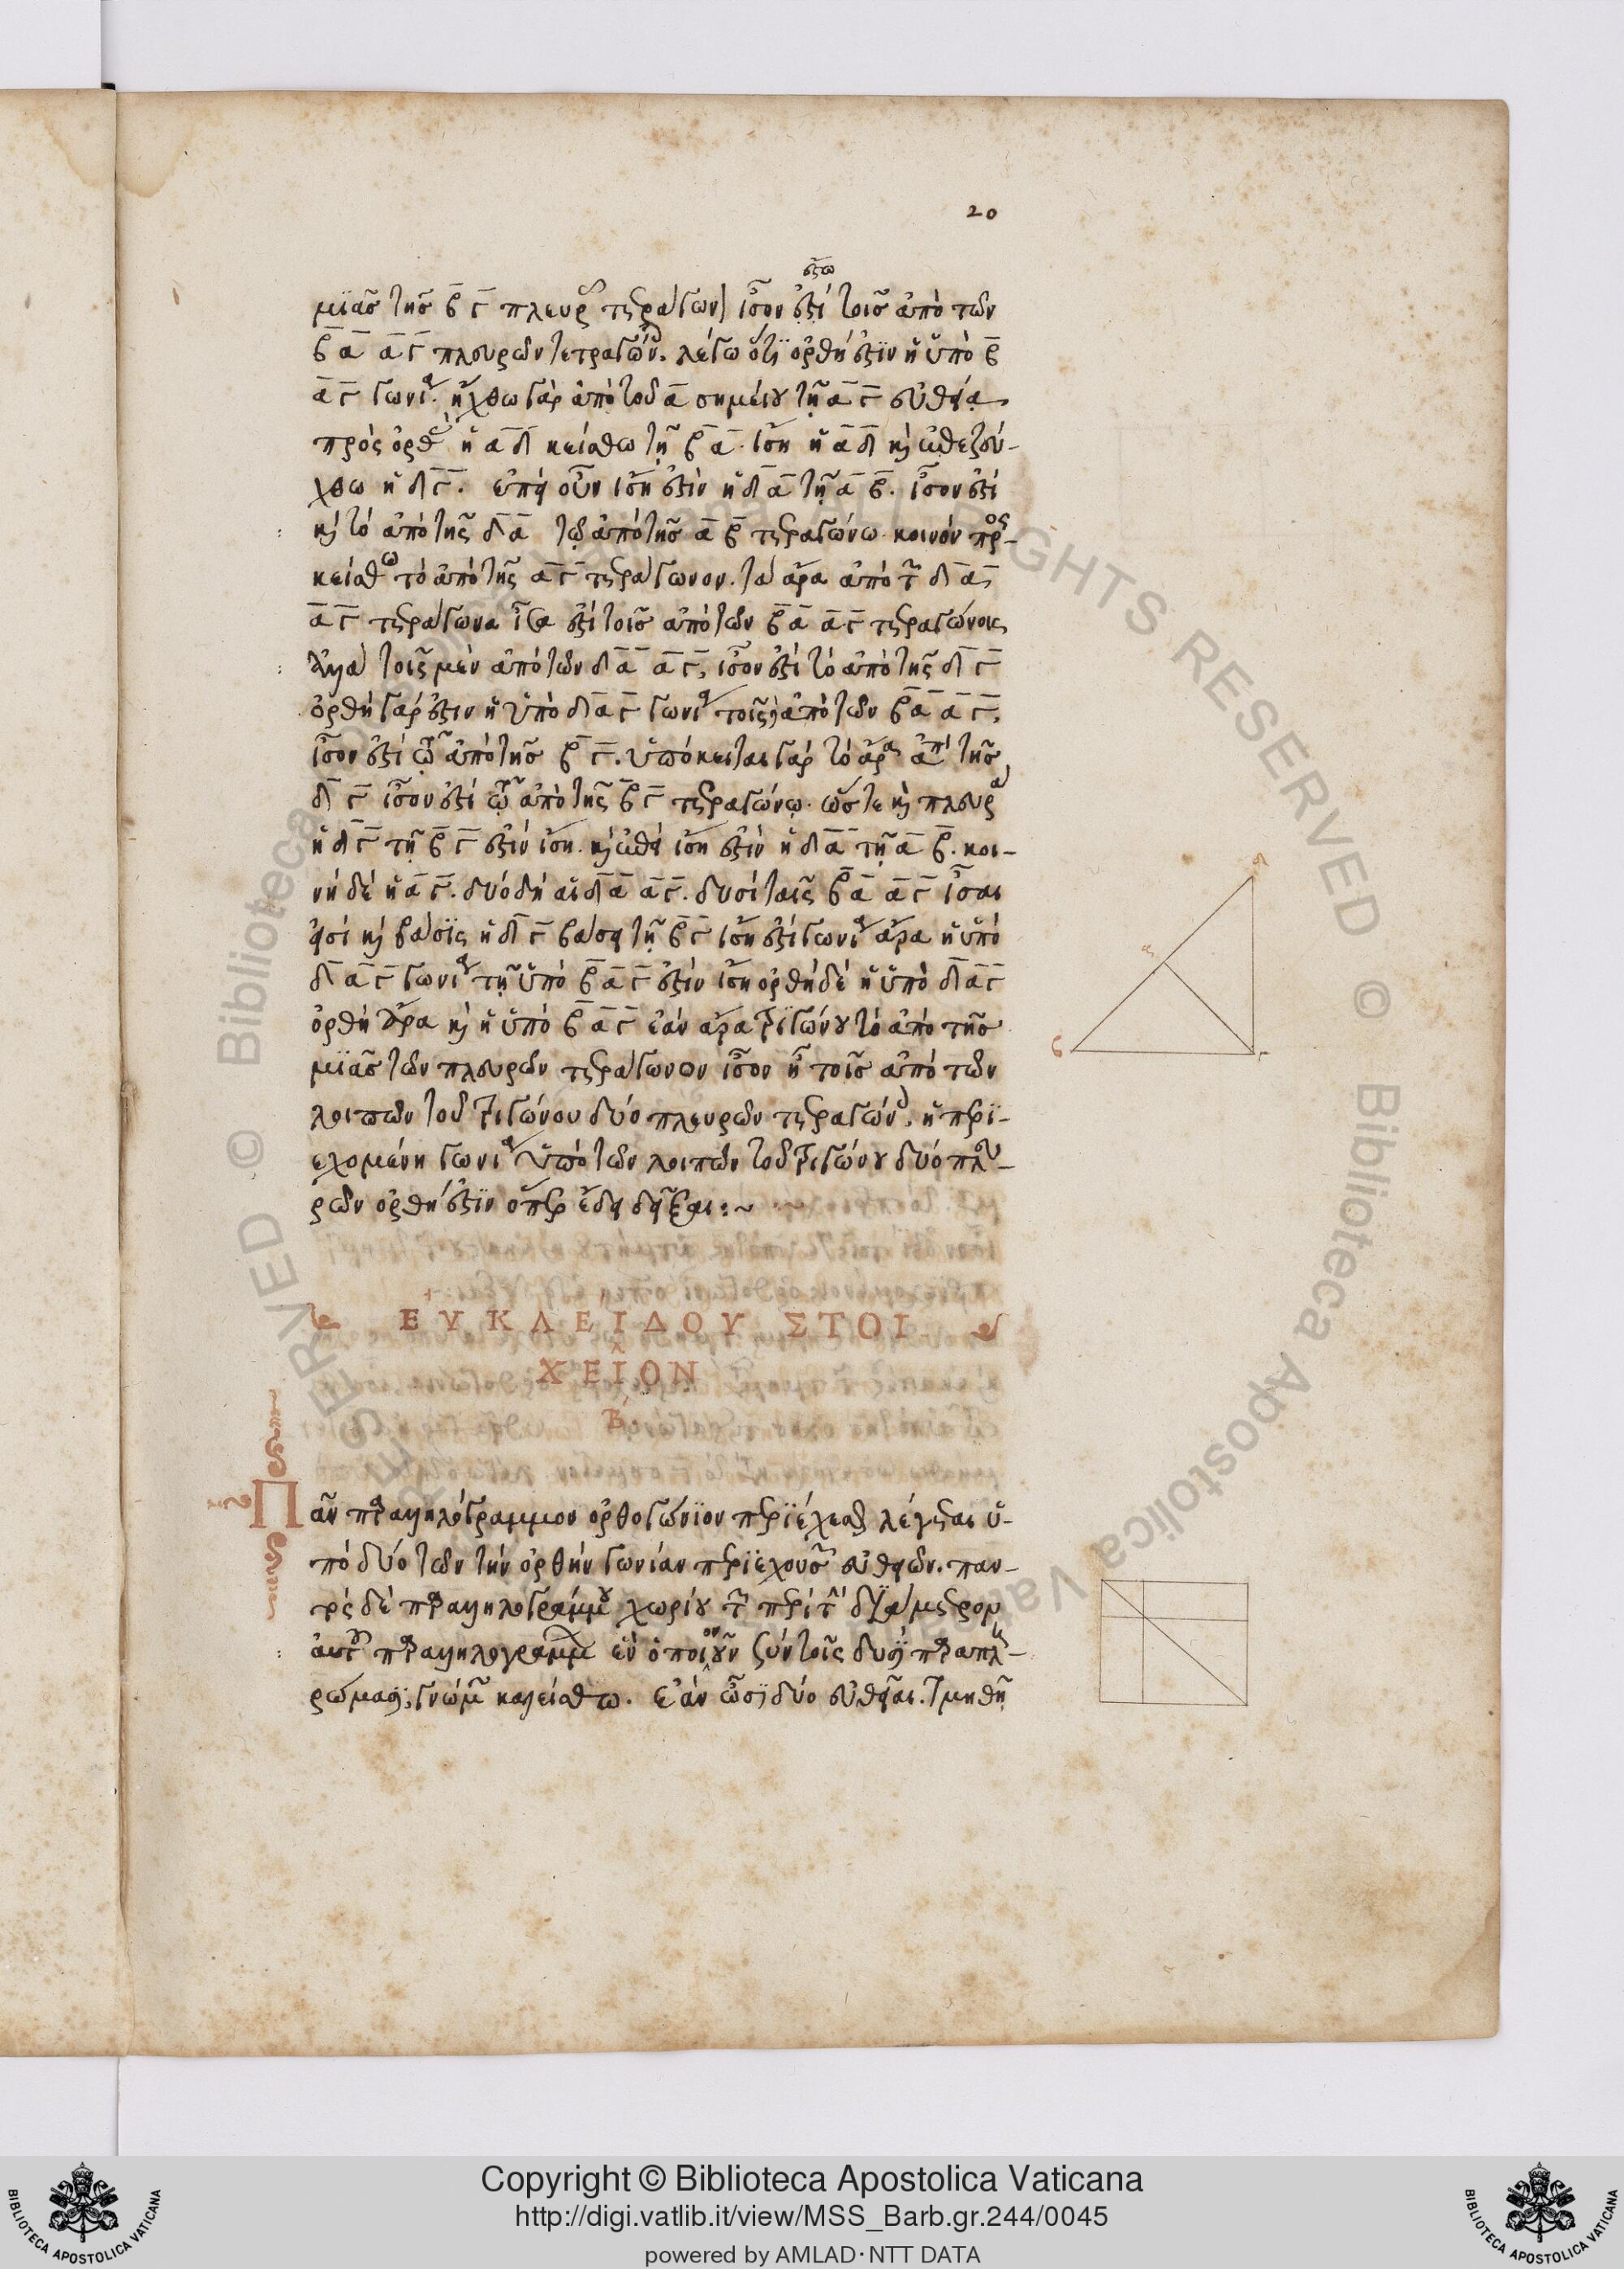 20
ἔστω
μϊᾶσ τῆσ β γ πλευρᾶς τετράγωνον ἴσον ἐστί τοῖσ ἀπὸ τῶν
β α α γ πλευρῶν τετραγώνοις. λέγω ὅτϊ ὀρθή ἐστϊν ἡ ὑπὸ β
α γ γωνία. ἤχθω γάρ ἀπὸ τοῦ α σημείου τῇ α γ εὐθεία
πρὸς ὀρθὰς ἡ α δ κείσθω τῇ β α ἴση ἡ α δ καὶ ἐπεζεύ-
χθω ἡ δ γ. ἐπεὶ οὖν ἴση ἐστὶν ἡ δ α τῇ α β. ἴσον ἐστί
καὶ τό ἀπό τῆς δ α τῷ ἀπό τῆσ α β τετραγώνω. κοινόν προσ-
κείσθω τό ἀπό τῆς α γ τετράγωνον. τά ἄρα ἀπό τῶν δ α,
α γ τετράγωνα ἴσα ἐστί τοῖσ ἀπό τῶν β α α γ τετραγώνοις
ἀλλὰ τοῖς μέν ἀπό τῶν δ α α γ, ἴσον ἐστί τό ἀπό τῆς δ γ
ὀρθή γάρ ἐστιν ἡ ὑπό δ α γ γωνία τοῖς δὲ ἀπό τῶν β α α γ,
ἴσον ἐστί τῶ ἀπό τῆσ β γ. ὑπόκειται γάρ τό ἄρα ἀπό τῆσ
δ γ ἴσον ἐστί τῶ ἀπό τῆς β γ τετραγώνῳ. ὥστε καὶ πλευρὰ
ἡ δ γ τῇ β γ ἐστίν ἴση. καὶ ἐπεὶ ἴση ἐστίν ἡ δ α τῇ α β. κοι-
νή δέ ἡ α γ. δύο δή αἱ δ α α γ. δυσί ταῖς β α α γ ἴσαι
εἰσί καὶ βάσϊς ἡ δ γ βάσει τῇ β γ ἴση ἐστί γωνία ἄρα ἡ ὑπό
δ α γ γωνία τῇ ὑπό β α γ ἐστίν ἴση ὀρθή δέ ἡ ὑπὸ δ α γ
ὀρθή ἄρα καὶ ἡ ὑπό β α γ ἐάν ἄρα τριγώνου τό ἀπό τῆσ
μϊᾶσ τῶν πλευρῶν τετράγωνον ἴσον ᾖ τοῖσ ἀπό τῶν
λοιπῶν τοῦ τριγώνου δύο πλευρῶν τετραγώνοις, ἡ περϊ-
εχομένη γωνία ὑπό τῶν λοιπῶν τοῦ τριγώνου δύο πλευ-
ρῶν ὀρθή ἐστϊν ὅπερ ἔδει δεῖξαι:~
ΕΥΚΛΕΙΔΟΥ ΣΤΟΙ
ΧΕΙΟΝ
Β.
Πᾶν παραλληλόγραμμον ὀρθογώνϊον περϊέχεσθαι λέγεται ὑ-
πό δύο τῶν τήν ὀρθήν γωνίαν περϊεχουσῶν εὐθειῶν. παν-
τός δέ παραλληλογράμμου χωρίου τῶν περί τήν δϊάμετρον
αὐτοῦ παραλληλογράμμων ἕν ὁποιονοῦν σύν τοῖς δυσὶ παραπλη-
ρώμασϊ, γνώμων καλείσθω. Ἐάν ὦσϊ δύο εὐθεῖαι. τμηθῇ
δ
α
β
γ
Copyright © Biblioteca Apostolica Vaticana
http://digi.vatlib.it/view/MSS_Barb.gr.244/0045
powered by AMLAD·NTT DATA
BIBLIOTECA APOSTOLICA VATICANA
BIBLIOTECA APOSTOLICA VATICANA